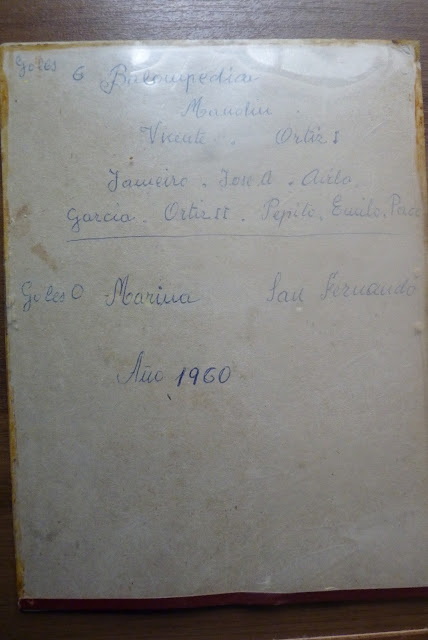 Goles 6 Balompédica
Mandu
Vicente . Ortiz I
Jameiro . Jose A . Avila .
Garcia . Ortiz II . Pepito . Emilo . Paco
Goles 0 Marina San Fernando
Año 1960